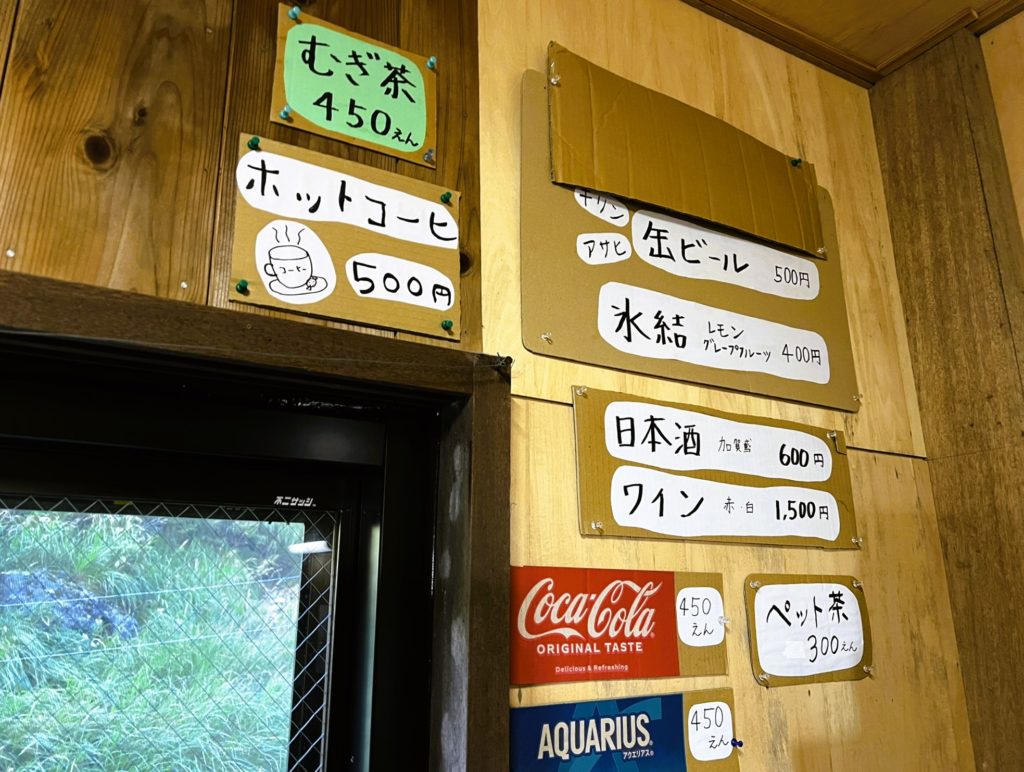 むぎ茶
450えん
ホットコーヒ
コーヒー
500円
キリン
アサヒ
缶ビール 500円
氷結 レモン
グレープフルーツ 400円
日本酒 加賀鳶 600円
ワイン 赤・白 1,500円
Coca-Cola
ORIGINAL TASTE
Delicious & Refreshing
450
えん
ペット茶
300えん
AQUARIUS
アクエリアス
450
えん
不二サッシ